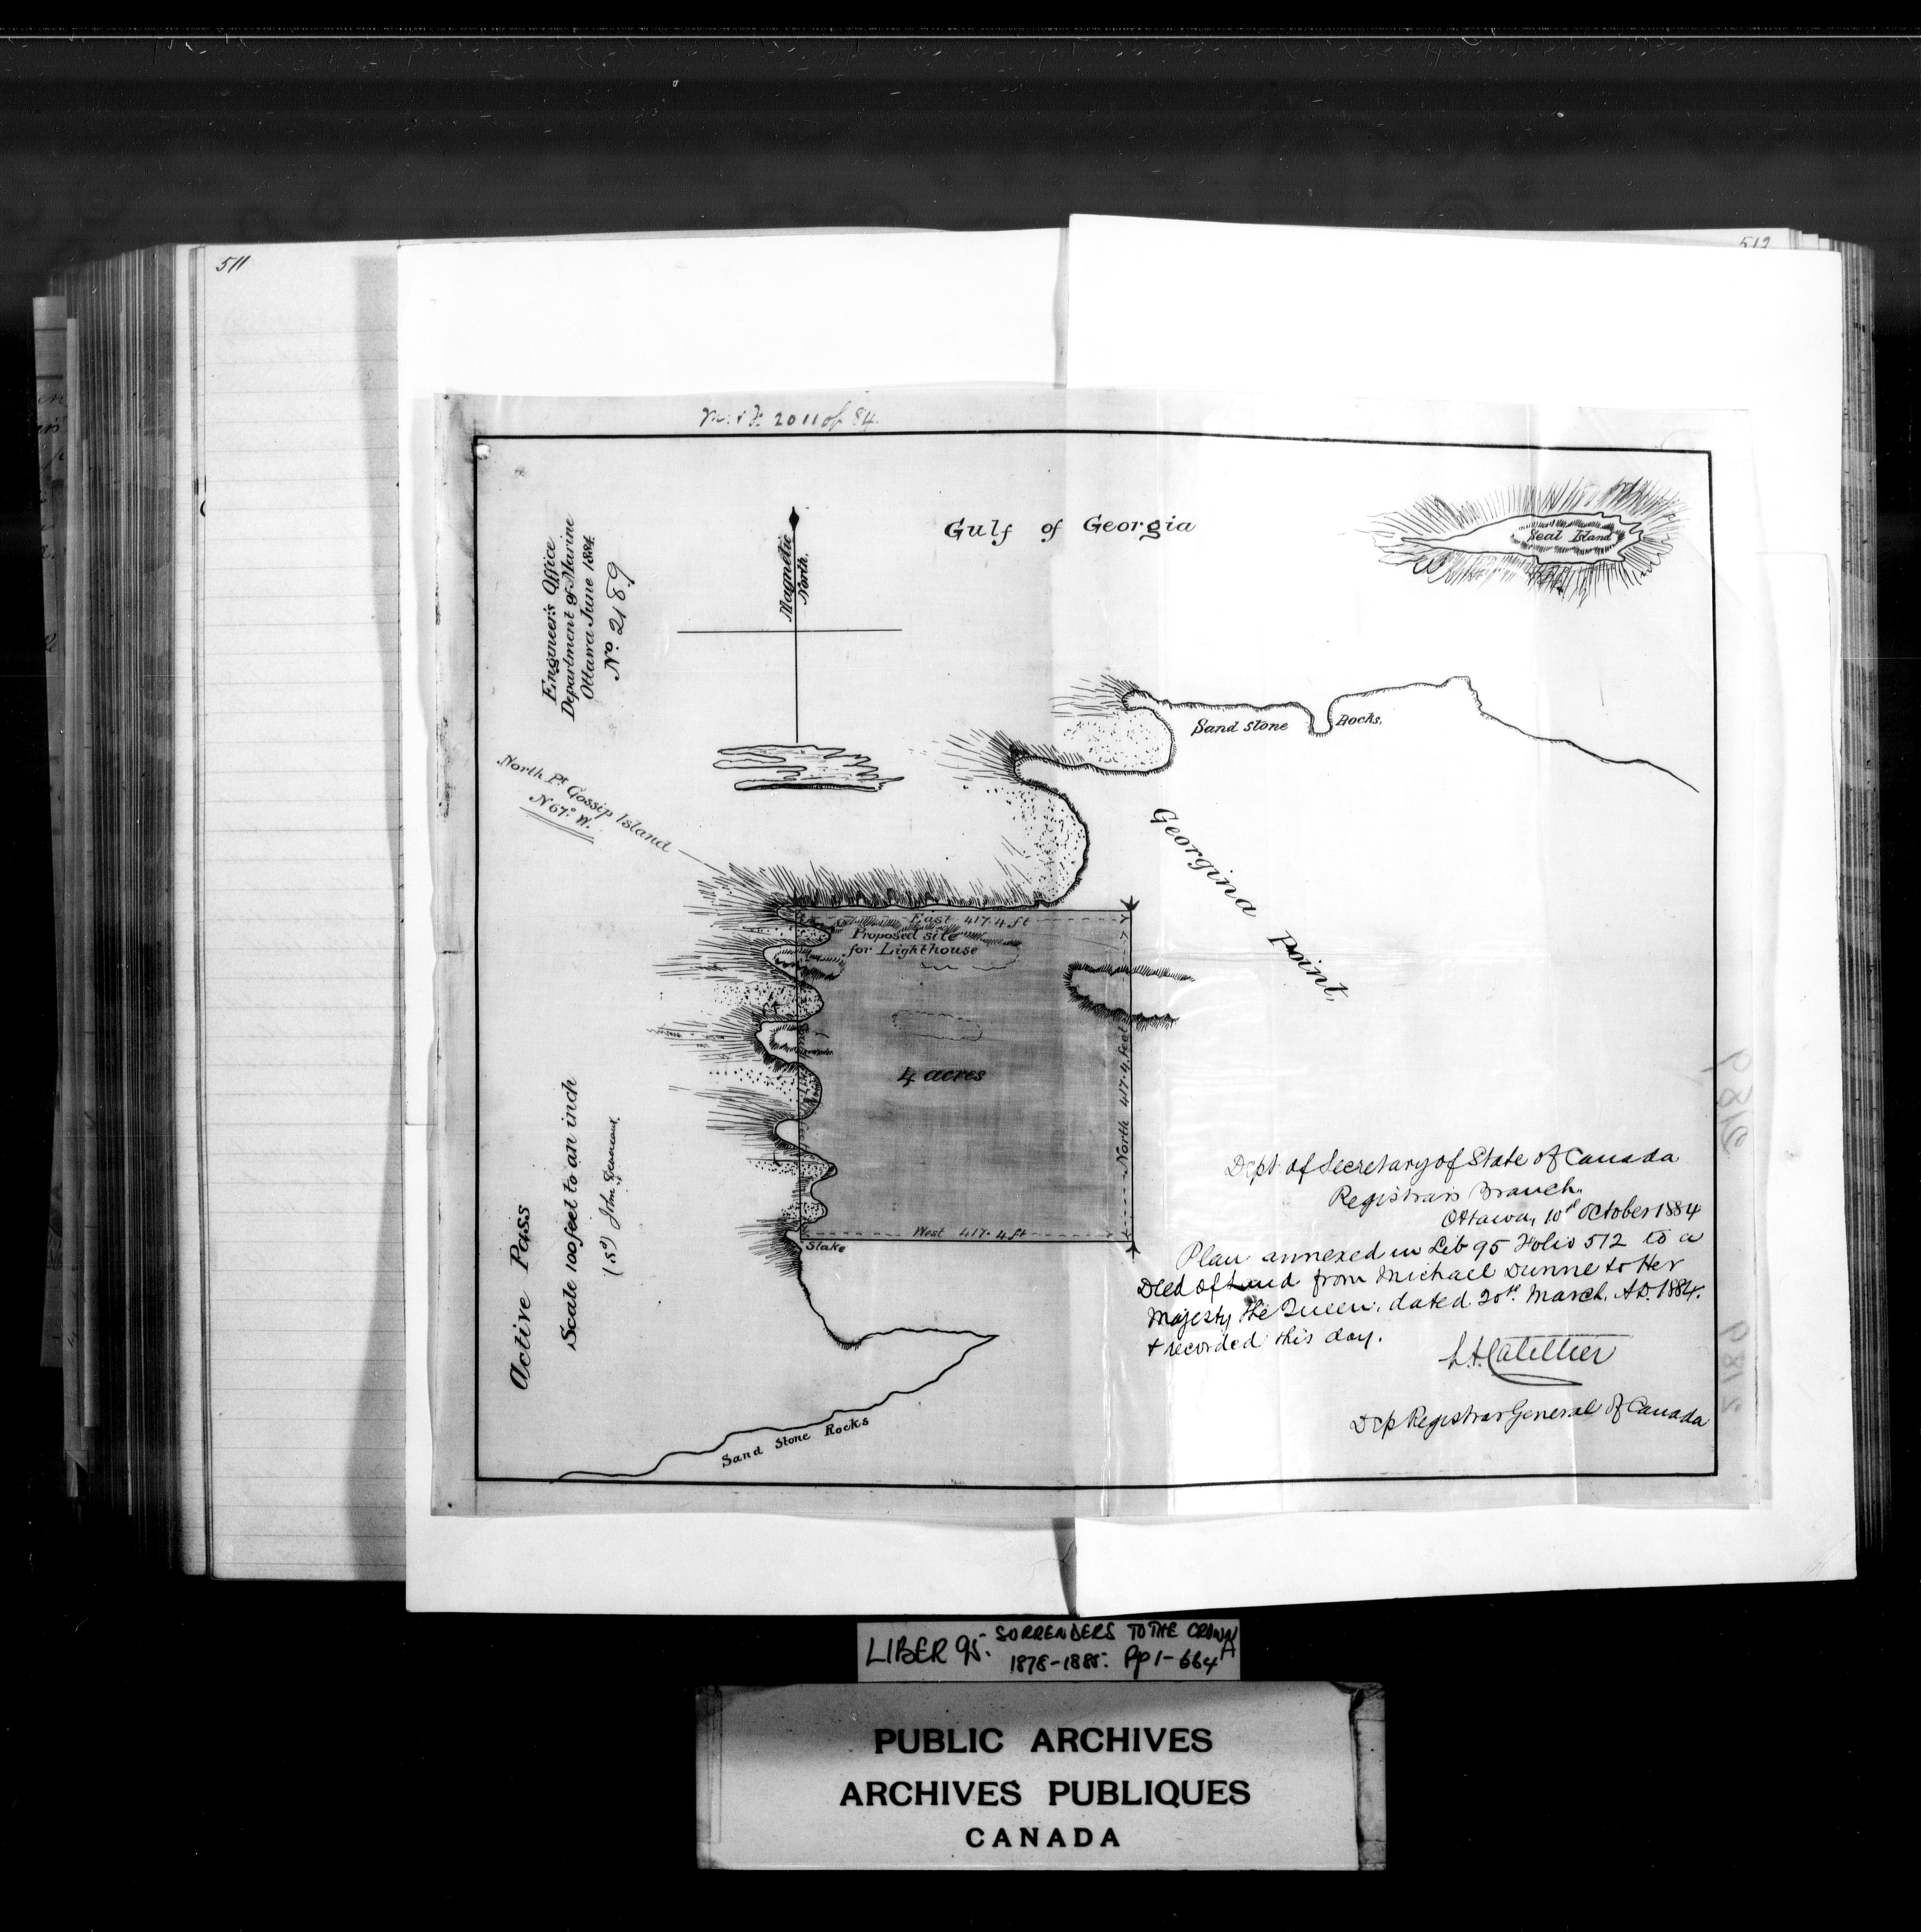 511
512
M. & F. 2011 of 84.
Engineer's Office
Department of Marine
Ottawa June 1884
No. 2189
Magnetic
North.
Gulf of Georgia
Seal Island
Sand Stone Rocks.
North Pt. Gossip Island
N 67° W.
Georgina Point.
East 417.4 ft
Proposed site
for Lighthouse
4 acres
North 417.4 feet
West 417.4 ft
Stake
Active Pass
Scale 100 feet to an inch
(Sd) John
Sand Stone Rocks
Dept of Secretary of State of Canada
Registrar's Branch.
Ottawa, 10th October 1884
Plan annexed in Lib 95 Folio 512 to a
Deed of Land from Michael Dunne to Her
Majesty the Queen, dated 20th March, A.D. 1884.
& recorded this day.
L.A. Catellier
Dep Registrar General of Canada
2189
2189
LIBER 95. SURRENDERS TO THE CROWN
1878-1885. Pp 1-664A
PUBLIC ARCHIVES
ARCHIVES PUBLIQUES
CANADA